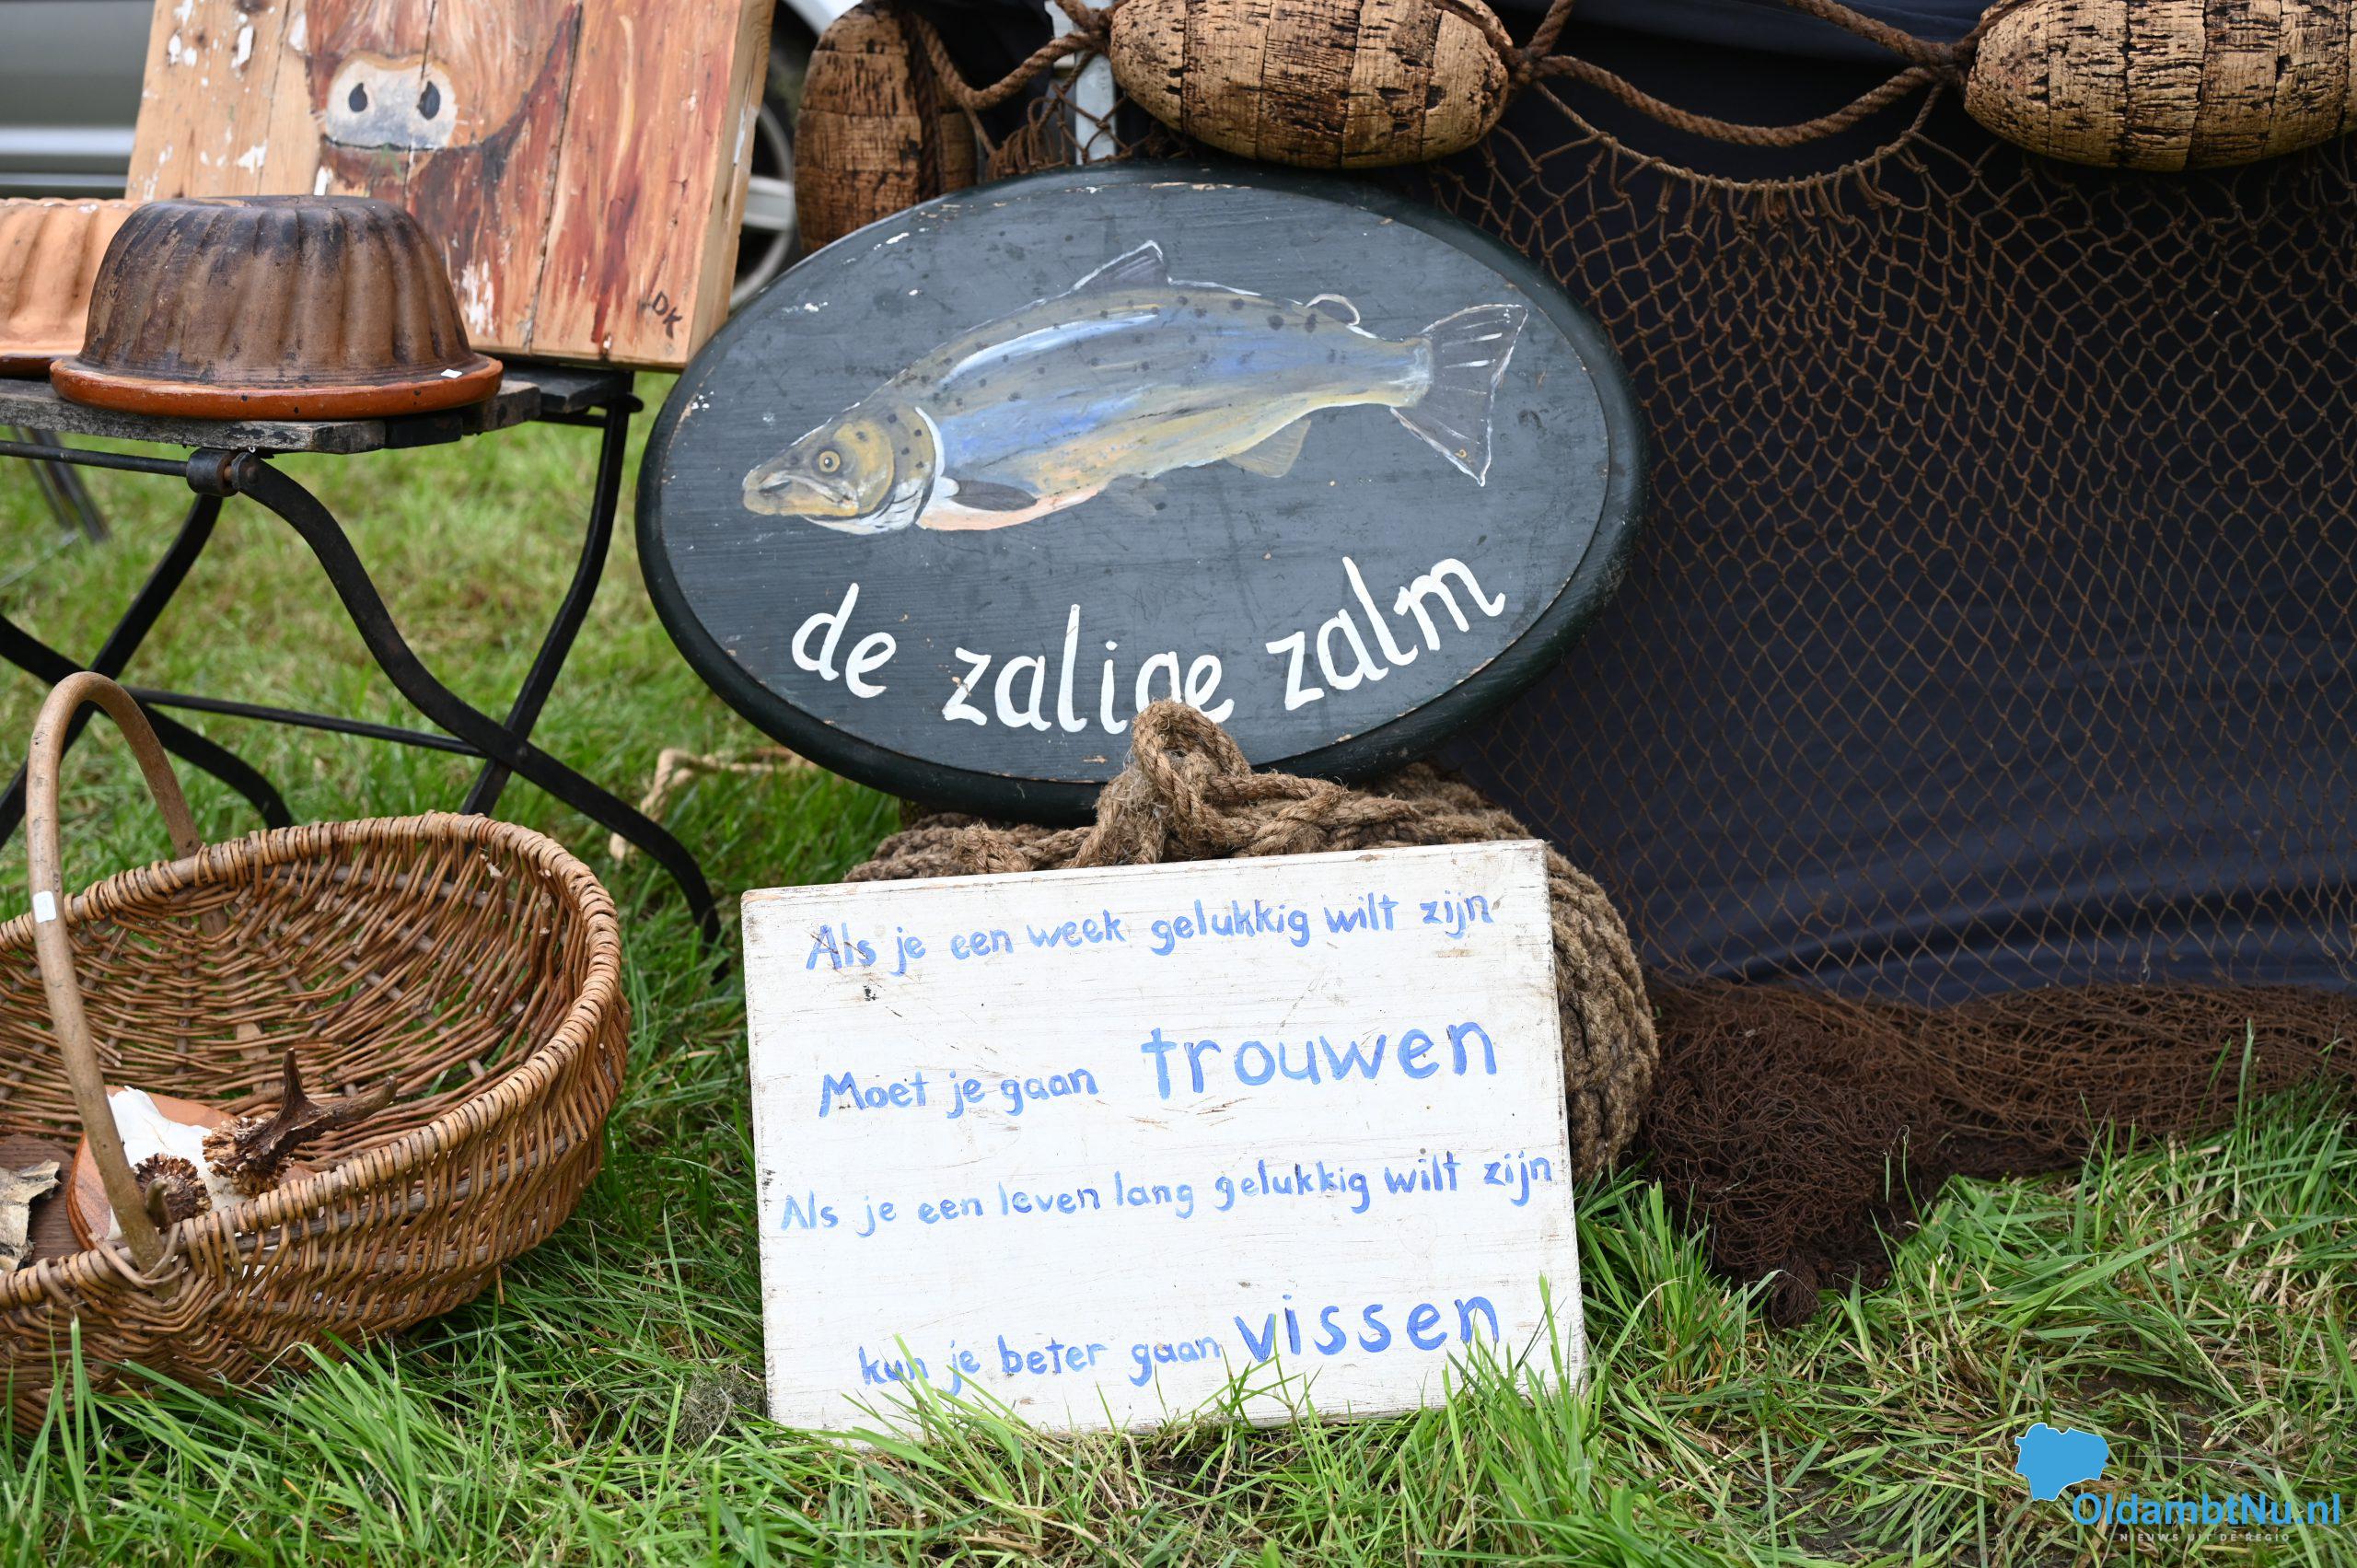 DK
de zalige zalm
Als je een week gelukkig wilt zijn
Moet je gaan trouwen
Als je een leven lang gelukkig wilt zijn
kun je beter gaan vissen
OldambtNu.nl
NIEUWS UIT DE REGIO